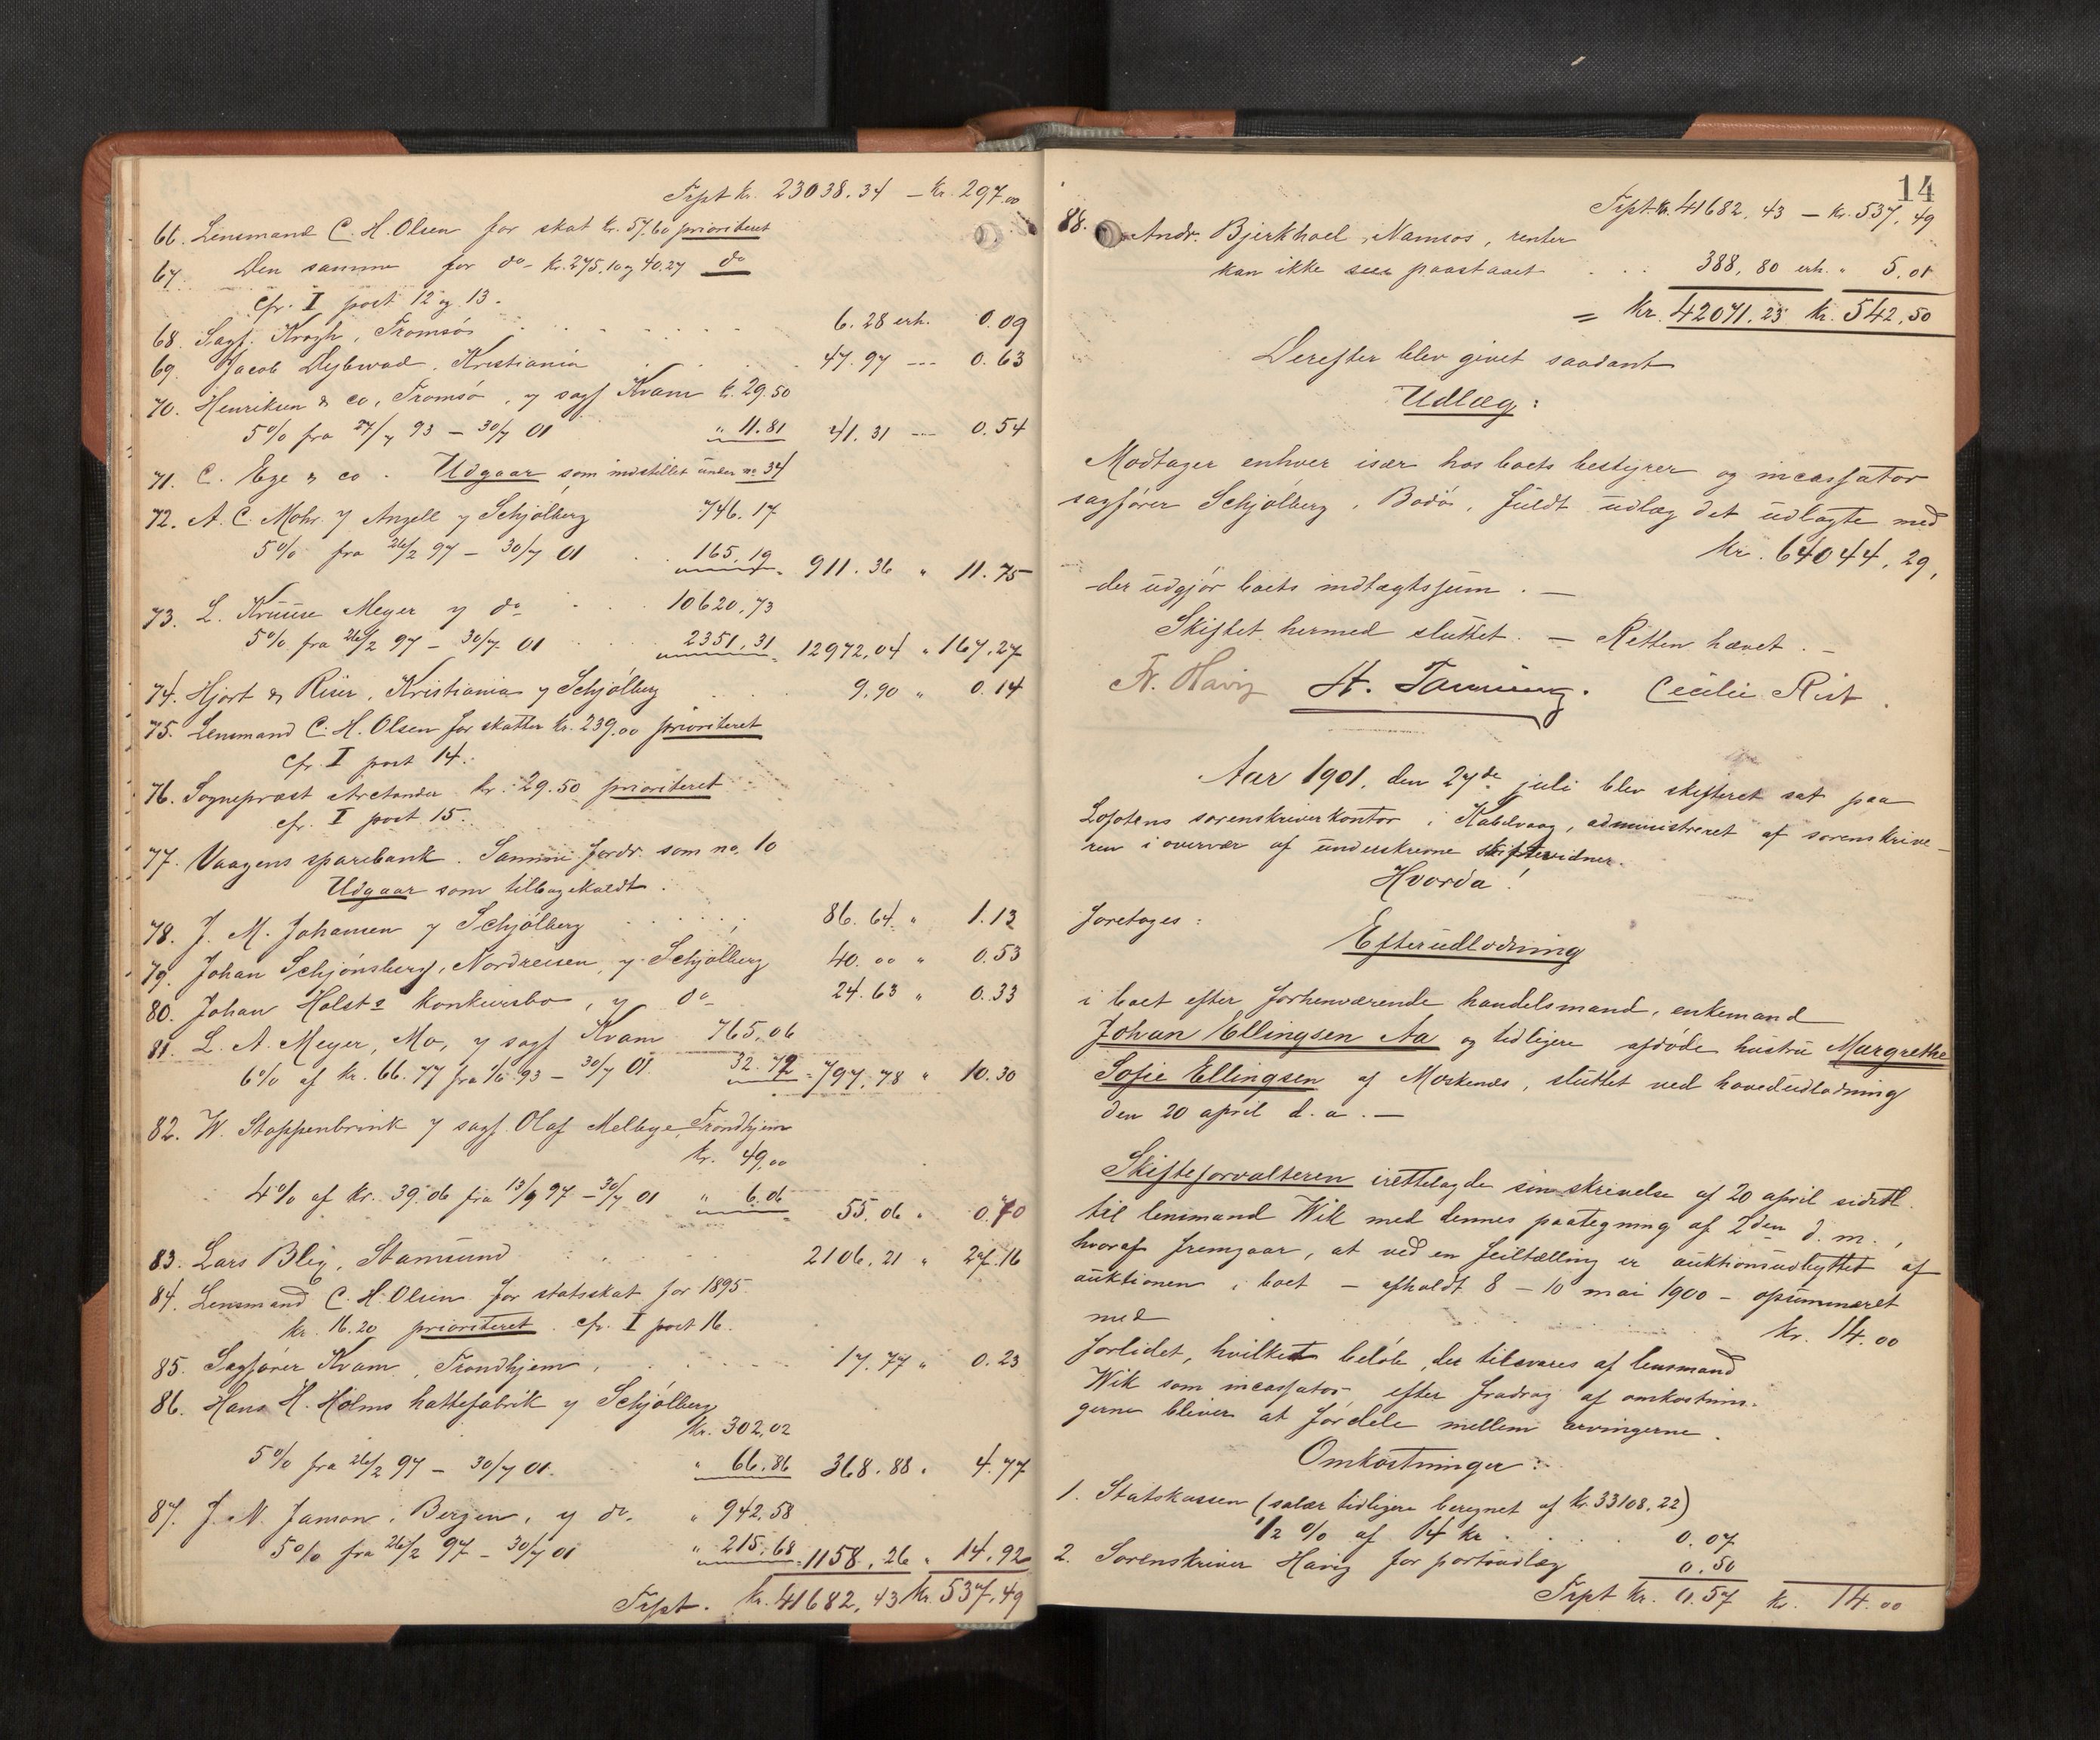 Trpt kr. 23038.34 – kr. 297.00
66. Lensmand C. H. Olsen for skat kr. 57.60 prioriteret
67. Den samme for do kr. 275.10 og 40.27 do
cfr. I post 12 og 13.
68. Sagf. Krogh, Tromsø 6.28 erh. 0.09
69. Jacob Dybwad, Kristiania 47.97 – 0.63
70. Henriksen & co, Tromsø, v sagf Kvam kr. 29.50
5% fra 27/7 93 – 30/7 01 " 11.81 41.31 – 0.54
71. C. Ege & co. Udgaar som indstillet under no 34
72. A. C. Mohr v Angell v Schjølberg 746.17
5% fra 26/2 97 – 30/7 01 165.19 911.36 " 11.75
73. L. Kruuse Meyer v do 10620.73
5% fra 26/2 97 – 30/7 01 2351.31 12972,04 " 167,27
74. Hjort & Riis, Kristiania v Schjølberg 9,90 " 0.14
75. Lensmand C. H. Olsen for skatter kr. 239.00 prioriteret
cfr. I post 14.
76. Sogneprest Arctander kr. 29.50 prioriteret
cfr. I post 15.
77. Vaagens sparebank. Samme fordr. som no. 10
Udgaar som tilbagekaldt.
78. J. M. Johansen v Schjølberg 86.64 " 1.13
79. Johan Schjønsberg, Nordreisen, v Schjølberg 40.00 " 0.53
80. Johan Holsts konkursbo, v do 24.63 " 0.33
81. L. A. Meyer, Mo, v sagf Kvam 765,06
6% af kr. 66.77 fra 1/6 93 – 30/7 01. 32.72 797.78 " 10.30
82. W. Stoppenbrink v sagf. Olaf Melbye, Trondhjem
kr. 49,00
4% af kr. 39.06 fra 13/9 97 – 30/7 01 " 6.06 55.06 " 0.70
83. Lars Blix, Stamsund 2106.21 " 27.16
84. Lensmand C. H. Olsen for statsskat for 1895
kr. 16.20 prioriteret. cfr. I post 16.
85. Sagfører Kvam, Trondhjem, 17.77 " 0.23
86. Hans H. Holms hattefabrik v Schjølberg
kr. 302,02
5% fra 26/2 97 – 30/7 01. " 66.86 368.88 " 4.77
87. J. N. Janson, Bergen, v do. " 942,58
5% fra 26/2 97 – 30/7 01 " 215.68 1158,26 " 14.92
Trpt. kr. 41682,43 kr. 537,49
14
Trpt kr. 41682,43 – kr. 537,49
88. Andr. Bjerkhoel, Namsos, renter
kan ikke sees paastaaet 388,80 erh. " 5.01
= kr. 42071.23 kr. 542,50
Derefter blev givet saadant
Udlæg:
Modtager enhver især hos boets bestyrer og incassator
sagfører Schjølberg, Bodø, fuldt udlæg det udlagte med
kr. 64044,29,
der udgjør boets indtægtssum. –
Skiftet hermed sluttet. – Retten hævet. –
Fr. Havig H. Tanning. Cecilie Rist.
Aar 1901, den 27de juli blev skifteret sat paa
Lofotens sorenskriverkontor i Kabelvaag, administreret af sorenskrive-
ren i overvær af underskrevne skiftevidner.
Hvorda!
foretoges:
Efterudlodning
i boet efter forhenværende handelsmand, enkemand
Johan Ellingsen Aa og tidligere afdøde hustru Margrethe
Sofie Ellingsen af Moskenes, sluttet ved hovedudlodning
den 20 april d. a. –
Skifteforvalteren irettelagde sin skrivelse af 20 april sidstl.
til lensmand Wik med dennes paategning af 2den d. m.,
hvoraf fremgaar, at ved en feiltælling er auktionsudbyttet af
auktionen i boet – afholdt 8 – 10 mai 1900 – opsummeret
med kr. 14.00
forlidet, hvilket beløb, der tilsvares af lensmand
Wik som incassator efter fradrag af omkostnin-
gerne bliver at fordele mellem arvingerne.
Omkostninger:
1. Statskassen (salær tidligere beregnet af kr. 33108.22)
1/2 % af 14 kr 0.07
2. Sorenskriver Havig for portoudlæg 0.50
Trpt kr. 0.57 kr. 14.00